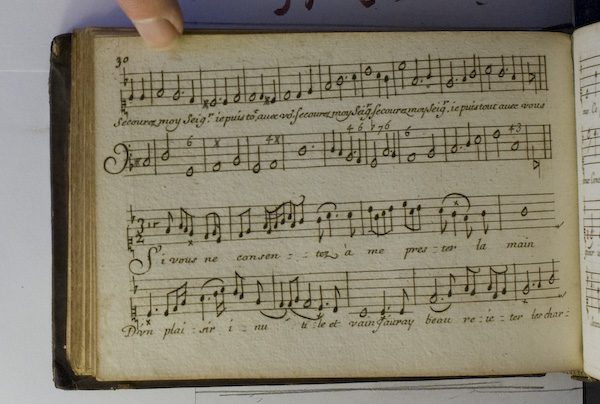 30
Secourez moy Seigr. ie puis to. auec vo. secourez moy Seigr. secourez moy Seigr. ie puis tout auec vous
6 x 4x 4 6 7 7 6 6 4 3
3 2
Si vous ne consen -:- tez à me pres -:- ter la main
D'vn plai -:- sir i -:- nu ti -:- le et vain J'auray beau re -:- ie -:- ter les char -